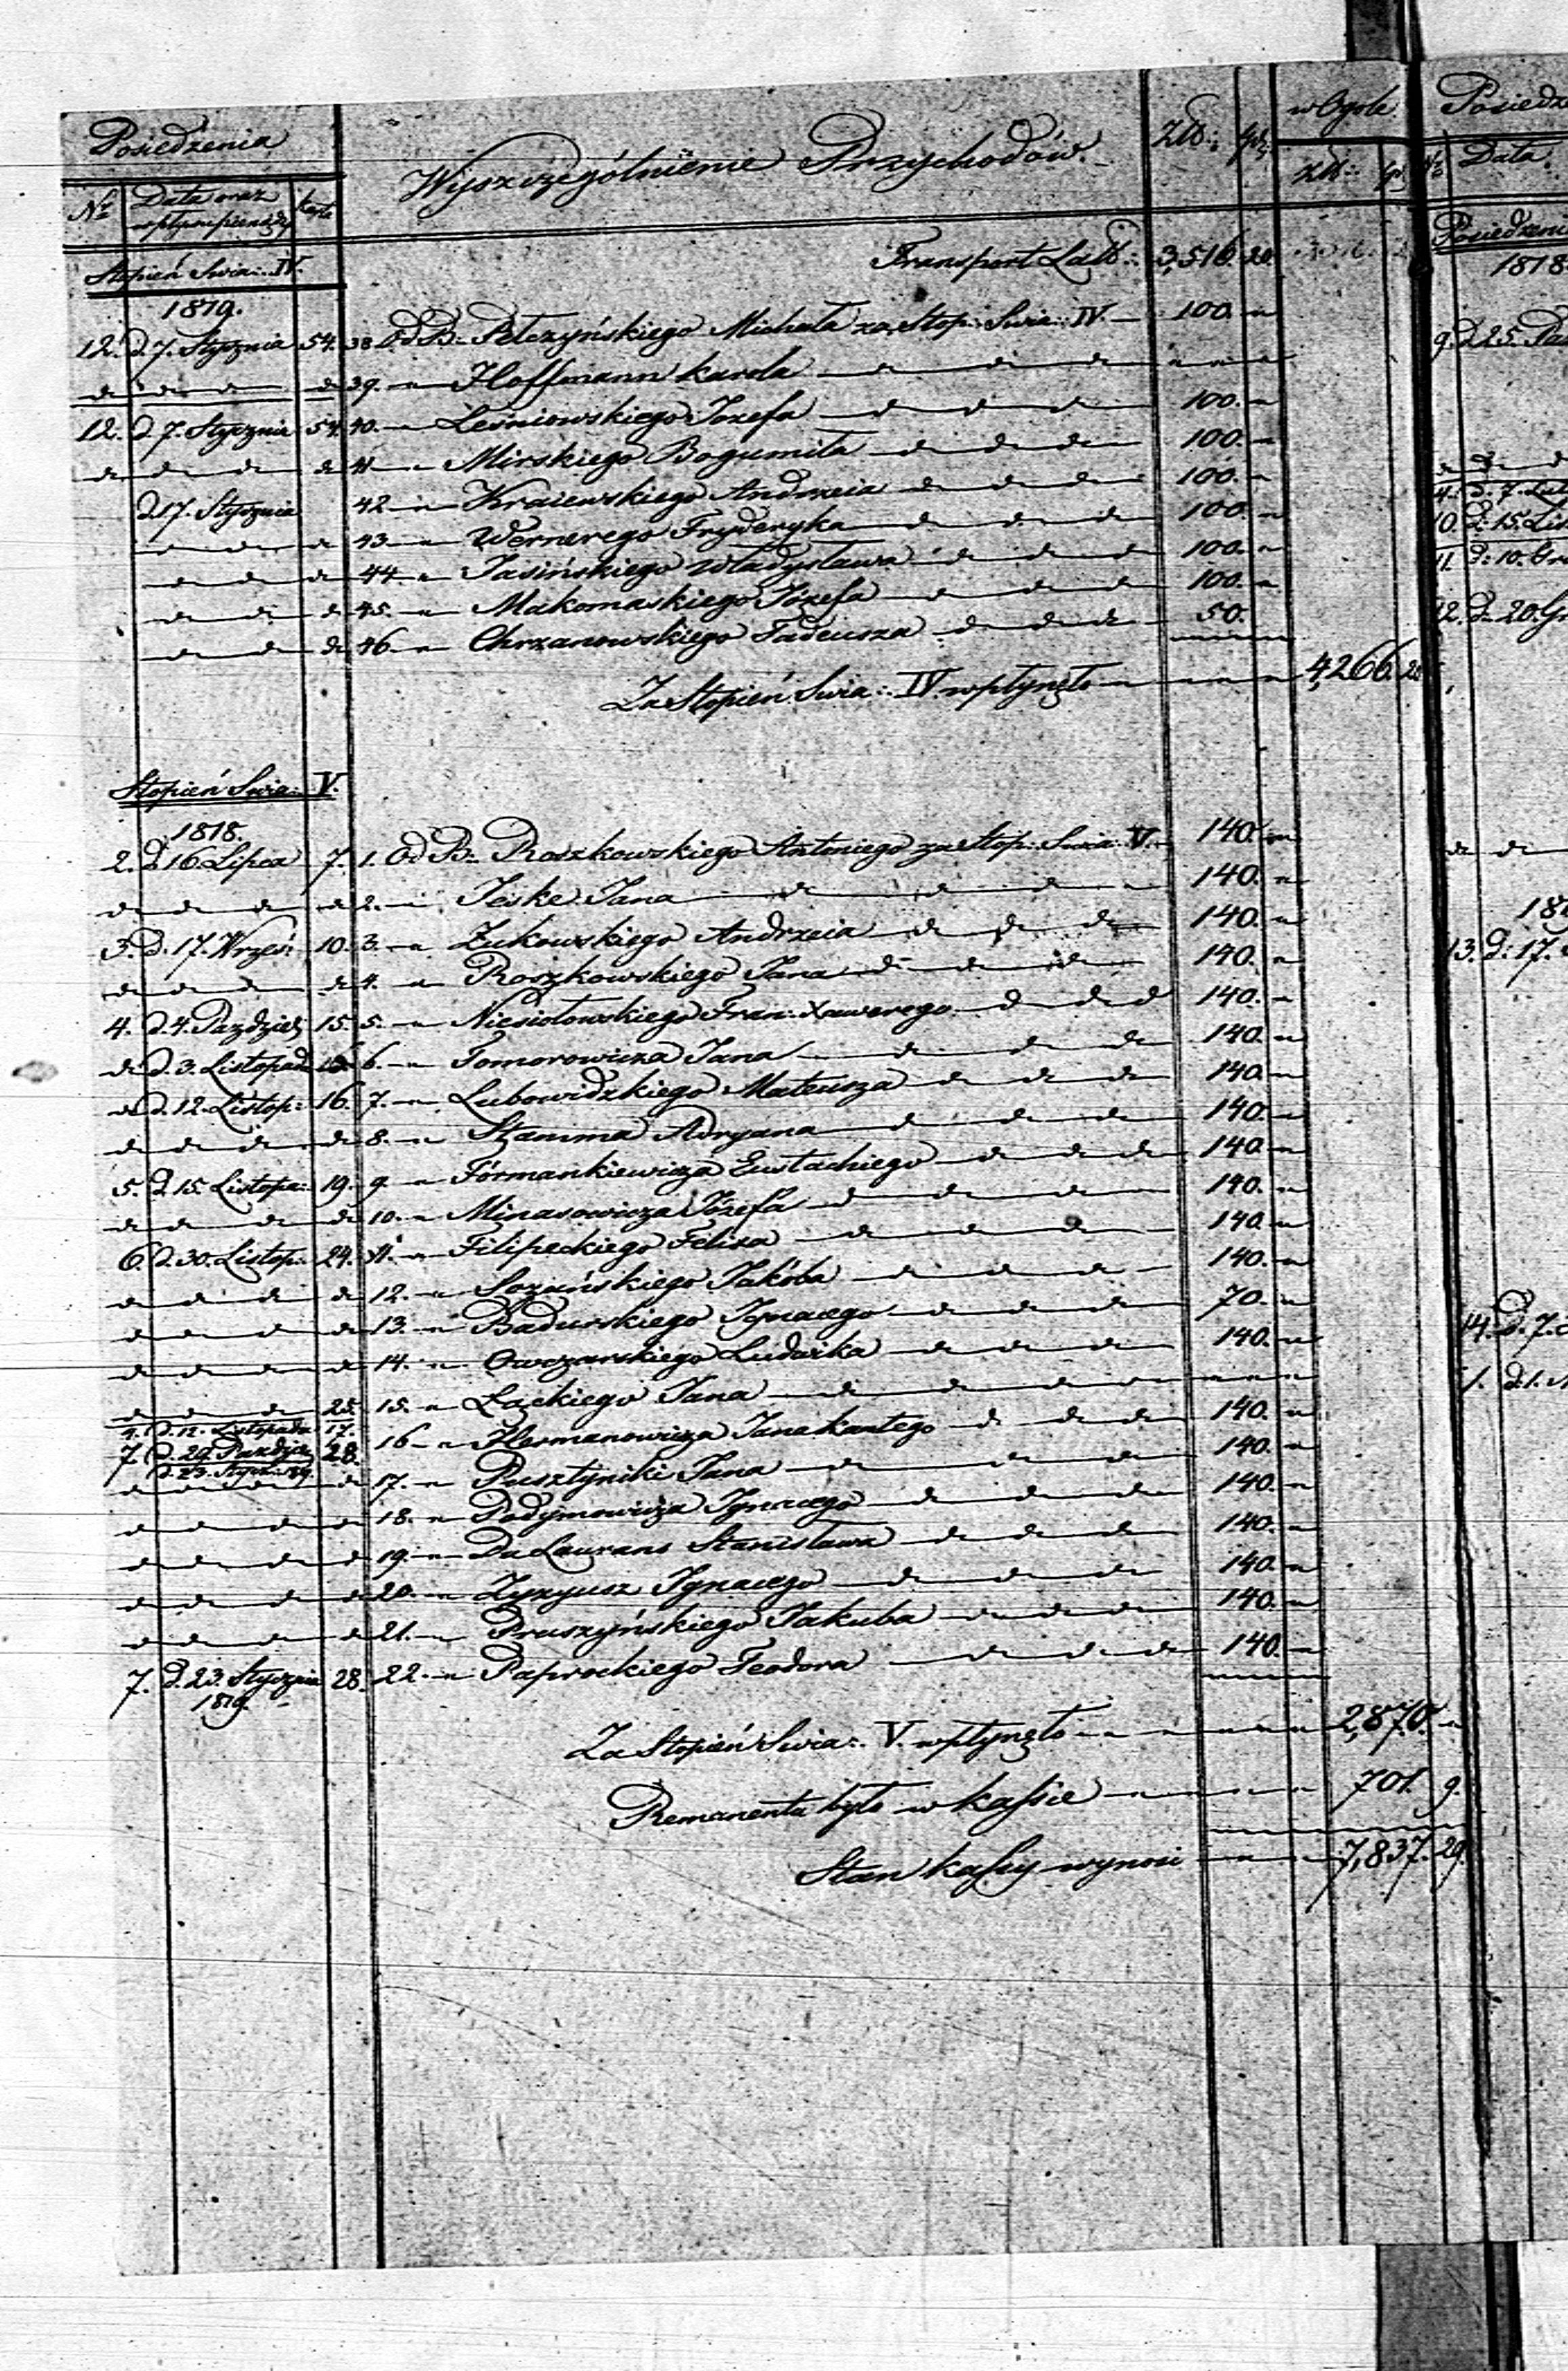 Posiedzenia Wyszczególnienie Przychodów. Złł: gr: w Ogole
No Data oraz wpływ pieniędzy karta Złł: gr:
Stopień Swia: IV. Transport Latᵈ: 3,516. 20.
1819.
12. d. 7. Stycznia 54. 38. Od B: Pełczyńskiego Michała za Stop: Swia: IV. — 100. "
d d d d 39. " Hoffmann karola d d d " " "
12. d. 7. Stycznia 54. 40. " Leśniowskiego Jozefa d d d 100. "
d d d d 41. " Mirskiego Bogumiła d d d 100. "
d. 17. Stycznia 42. " Kraiewskiego Andrzeia d d d 100. "
d d d 43. " Wernerego Fryderyka d d d 100. "
d d d 44. " Jasińskiego Władysława d d d 100. "
d d d 45. " Makomaskiego Józefa d d d 100. "
d d d 46. " Chrzanowskiego Tadeusza d d d 50.
Za Stopień Swia: IV. wpłynęło 4,266. 20
Stopień Swia: V.
1818.
2. d. 16. Lipca 7. 1. Od B: Roszkowskiego Antoniego za Stop: Swia: V. 140. "
d d d d 2. " Jeske Jana d d d 140. "
3. d. 17. Wrześ: 10. 3. " Żukowskiego Andrzeia d d d 140. "
d d d d 4. " Roszkowskiego Jana d d d 140. "
4. d. 4. Pazdzier 15. 5. " Niesiołowskiego Fran: Xawerego d d d 140. "
d d. 3. Listopada 6. " Tomorowicza Jana d d d 140. "
d d. 12. Listop: 16. 7. " Lubowidzkiego Mateusza d d d 140. "
d d d d 8. " Stamma Adryana d d d 140. "
5. d. 15. Listopa: 19. 9. " Formankiewicza Eustachiego d d d 140. "
d d d d 10. " Minasowicza Józefa d d d 140. "
6. d. 30. Listop: 24. 11. " Filipeckiego Felixa d d d 140. "
d d d d 12. " Sozańskiego Jakóba d d d 140. "
d d d d 13. " Badurskiego Ignacego d d d 70. "
d d d d 14. " Owczarskiego Ludwika d d d 140. "
d d d 25. 15. " Łąckiego Jana d d d " " "
4. d. 12. Listopada 17.
7. d. 29. Pazdzier 28. 16. " Hermanowicza Jana kantego d d d 140. "
d. 23. Stycz: 1819.
d d d d 17. " Pusztyniki Jana d d d 140. "
d d d d 18. " Podymowicza Ignacego d d d 140. "
d d d d 19. " Du Laurans Stanisława d d d 140. "
d d d d 20. " Zyzyusz Ignacego d d d 140. "
d d d d 21. " Pruszyńskiego Jakuba d d d 140. "
7. d. 23. Stycznia 28. 22. " Paprockiego Teodora d d d 140. "
1819.
Za Stopień Swia: V. wpłynęło 2,870. "
Remanentu było w kassie 701. 9.
Stan kassy wynosi 7,837. 29.
Posiedz
No Data
Posiedzeni
1818
9. d. 25. Pa
4. d. 7. Lut
10. d. 15. Lis
11. d. 10. Gr
12. d. 20. Gr
181
13. d. 17.
14. d. 7.
1. d. 1.